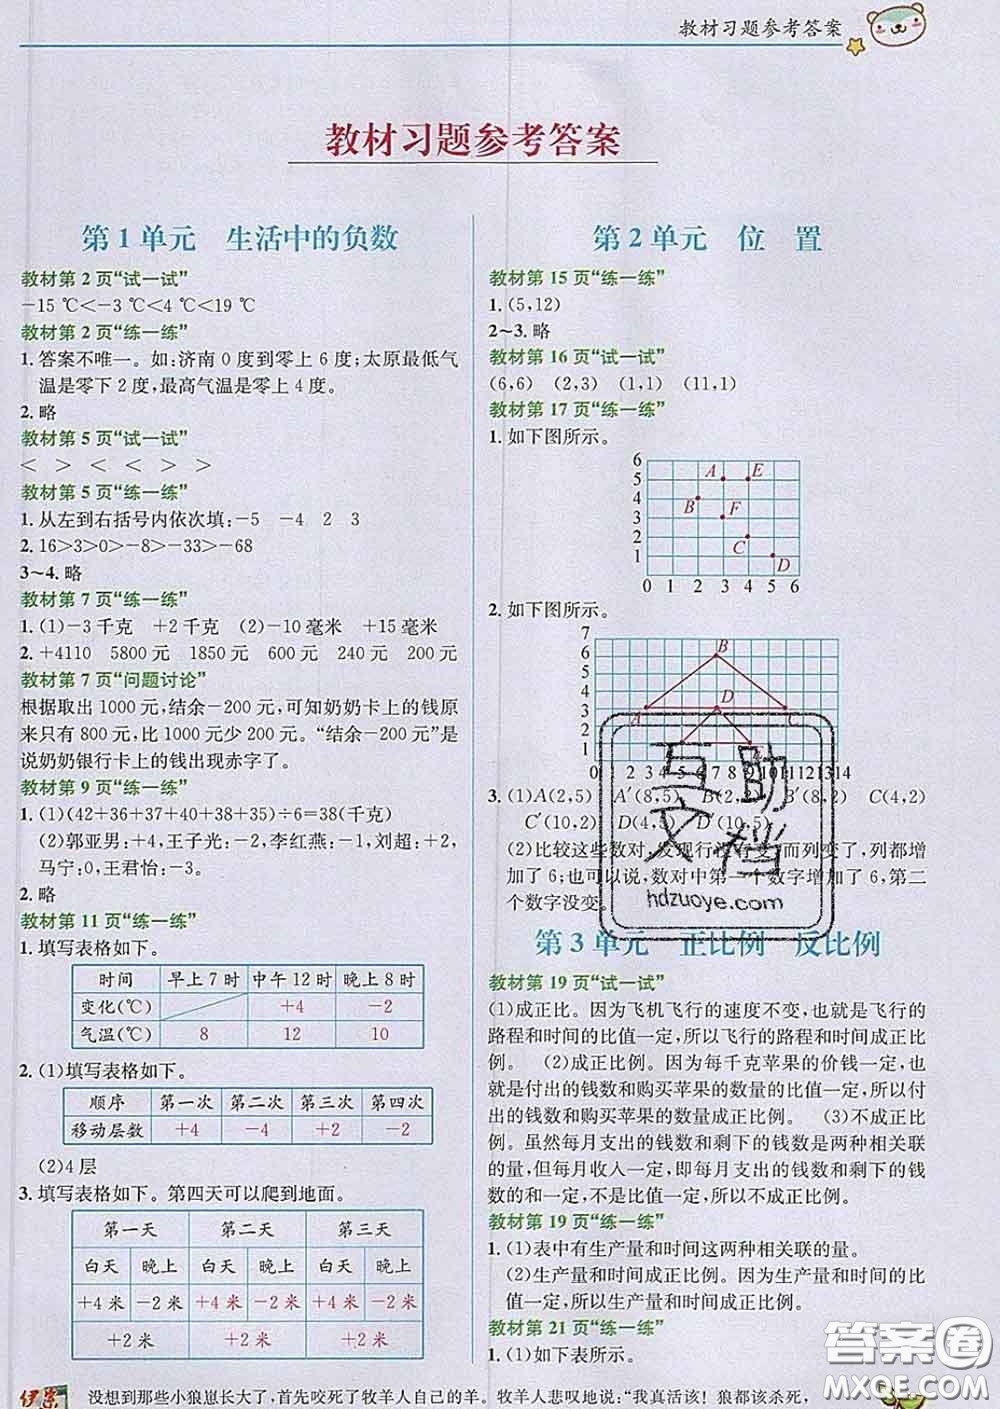 教材习题参考答案
教材习题参考答案
第1单元 生活中的负数
教材第2页“试一试”
-15 ℃<-3 ℃<4 ℃<19 ℃
教材第2页“练一练”
1. 答案不唯一。如:济南0度到零上6度;太原最低气
温是零下2度,最高气温是零上4度。
2. 略
教材第5页“试一试”
< > < < > >
教材第5页“练一练”
1. 从左到右括号内依次填:-5 -4 2 3
2. 16>3>0>-8>-33>-68
3~4. 略
教材第7页“练一练”
1. (1)-3千克 +2千克 (2)-10毫米 +15毫米
2. +4110 5800元 1850元 600元 240元 200元
教材第7页“问题讨论”
根据取出1000元,结余-200元,可知奶奶卡上的钱原
来只有800元,比1000元少200元。“结余-200元”是
说奶奶银行卡上的钱出现赤字了。
教材第9页“练一练”
1. (1)(42+36+37+40+38+35)÷6=38(千克)
(2)郭亚男:+4,王子光:-2,李红燕:-1,刘超:+2,
马宁:0,王君怡:-3。
2. 略
教材第11页“练一练”
1. 填写表格如下。
时间 早上7时 中午12时 晚上8时
变化(℃) +4 -2
气温(℃) 8 12 10
2. (1)填写表格如下。
顺序 第一次 第二次 第三次 第四次
移动层数 +4 -4 +2 -2
(2)4层
3. 填写表格如下。第四天可以爬到地面。
第一天 第二天 第三天
白天 晚上 白天 晚上 白天 晚上
+4米 -2米 +4米 -2米 +4米 -2米
+2米 +2米 +2米
第2单元 位置
教材第15页“练一练”
1. (5,12)
2~3. 略
教材第16页“试一试”
(6,6) (2,3) (1,1) (11,1)
教材第17页“练一练”
1. 如下图所示。
6
5
4
3
2
1
0 1 2 3 4 5 6
A E
B F
C
D
2. 如下图所示。
7
6
5
4
3
2
1
0 1 2 3 4 5 6 7 8 9 10 11 12 13 14
B
A D C
3. (1)A(2,5) A′(8,5) B(2,2) B′(8,2) C(4,2)
C′(10,2) D(4,5) D′(10,5)
(2)比较这些数对,发现行没有变,而列变了,列都增
加了6;也可以说,数对中第一个数字增加了6,第二
个数字没变。
第3单元 正比例 反比例
教材第19页“试一试”
(1)成正比。因为飞机飞行的速度不变,也就是飞行的
路程和时间的比值一定,所以飞行的路程和时间成正比
例。 (2)成正比例。因为每千克苹果的价钱一定,也
就是付出的钱数和购买苹果的数量的比值一定,所以付
出的钱数和购买苹果的数量成正比例。 (3)不成正比
例。虽然每月支出的钱数和剩下的钱数是两种相关联
的量,但因为每月收入一定,即每月支出的钱数和剩下的钱
数的和一定,不是比值一定,所以不成正比例。
教材第19页“练一练”
1. (1)表中有生产量和时间这两种相关联的量。
(2)生产量和时间成正比例。因为生产量和时间的比
值一定,所以生产量和时间成正比例。
教材第21页“练一练”
1. (1)如下表所示。
互助
文档
hdzuoye.com
答案圈
MXQE.COM
没想到那些小狼崽长大了,首先咬死了牧羊人自己的羊。牧羊人悲叹地说:“我真活该!狼都该杀死,